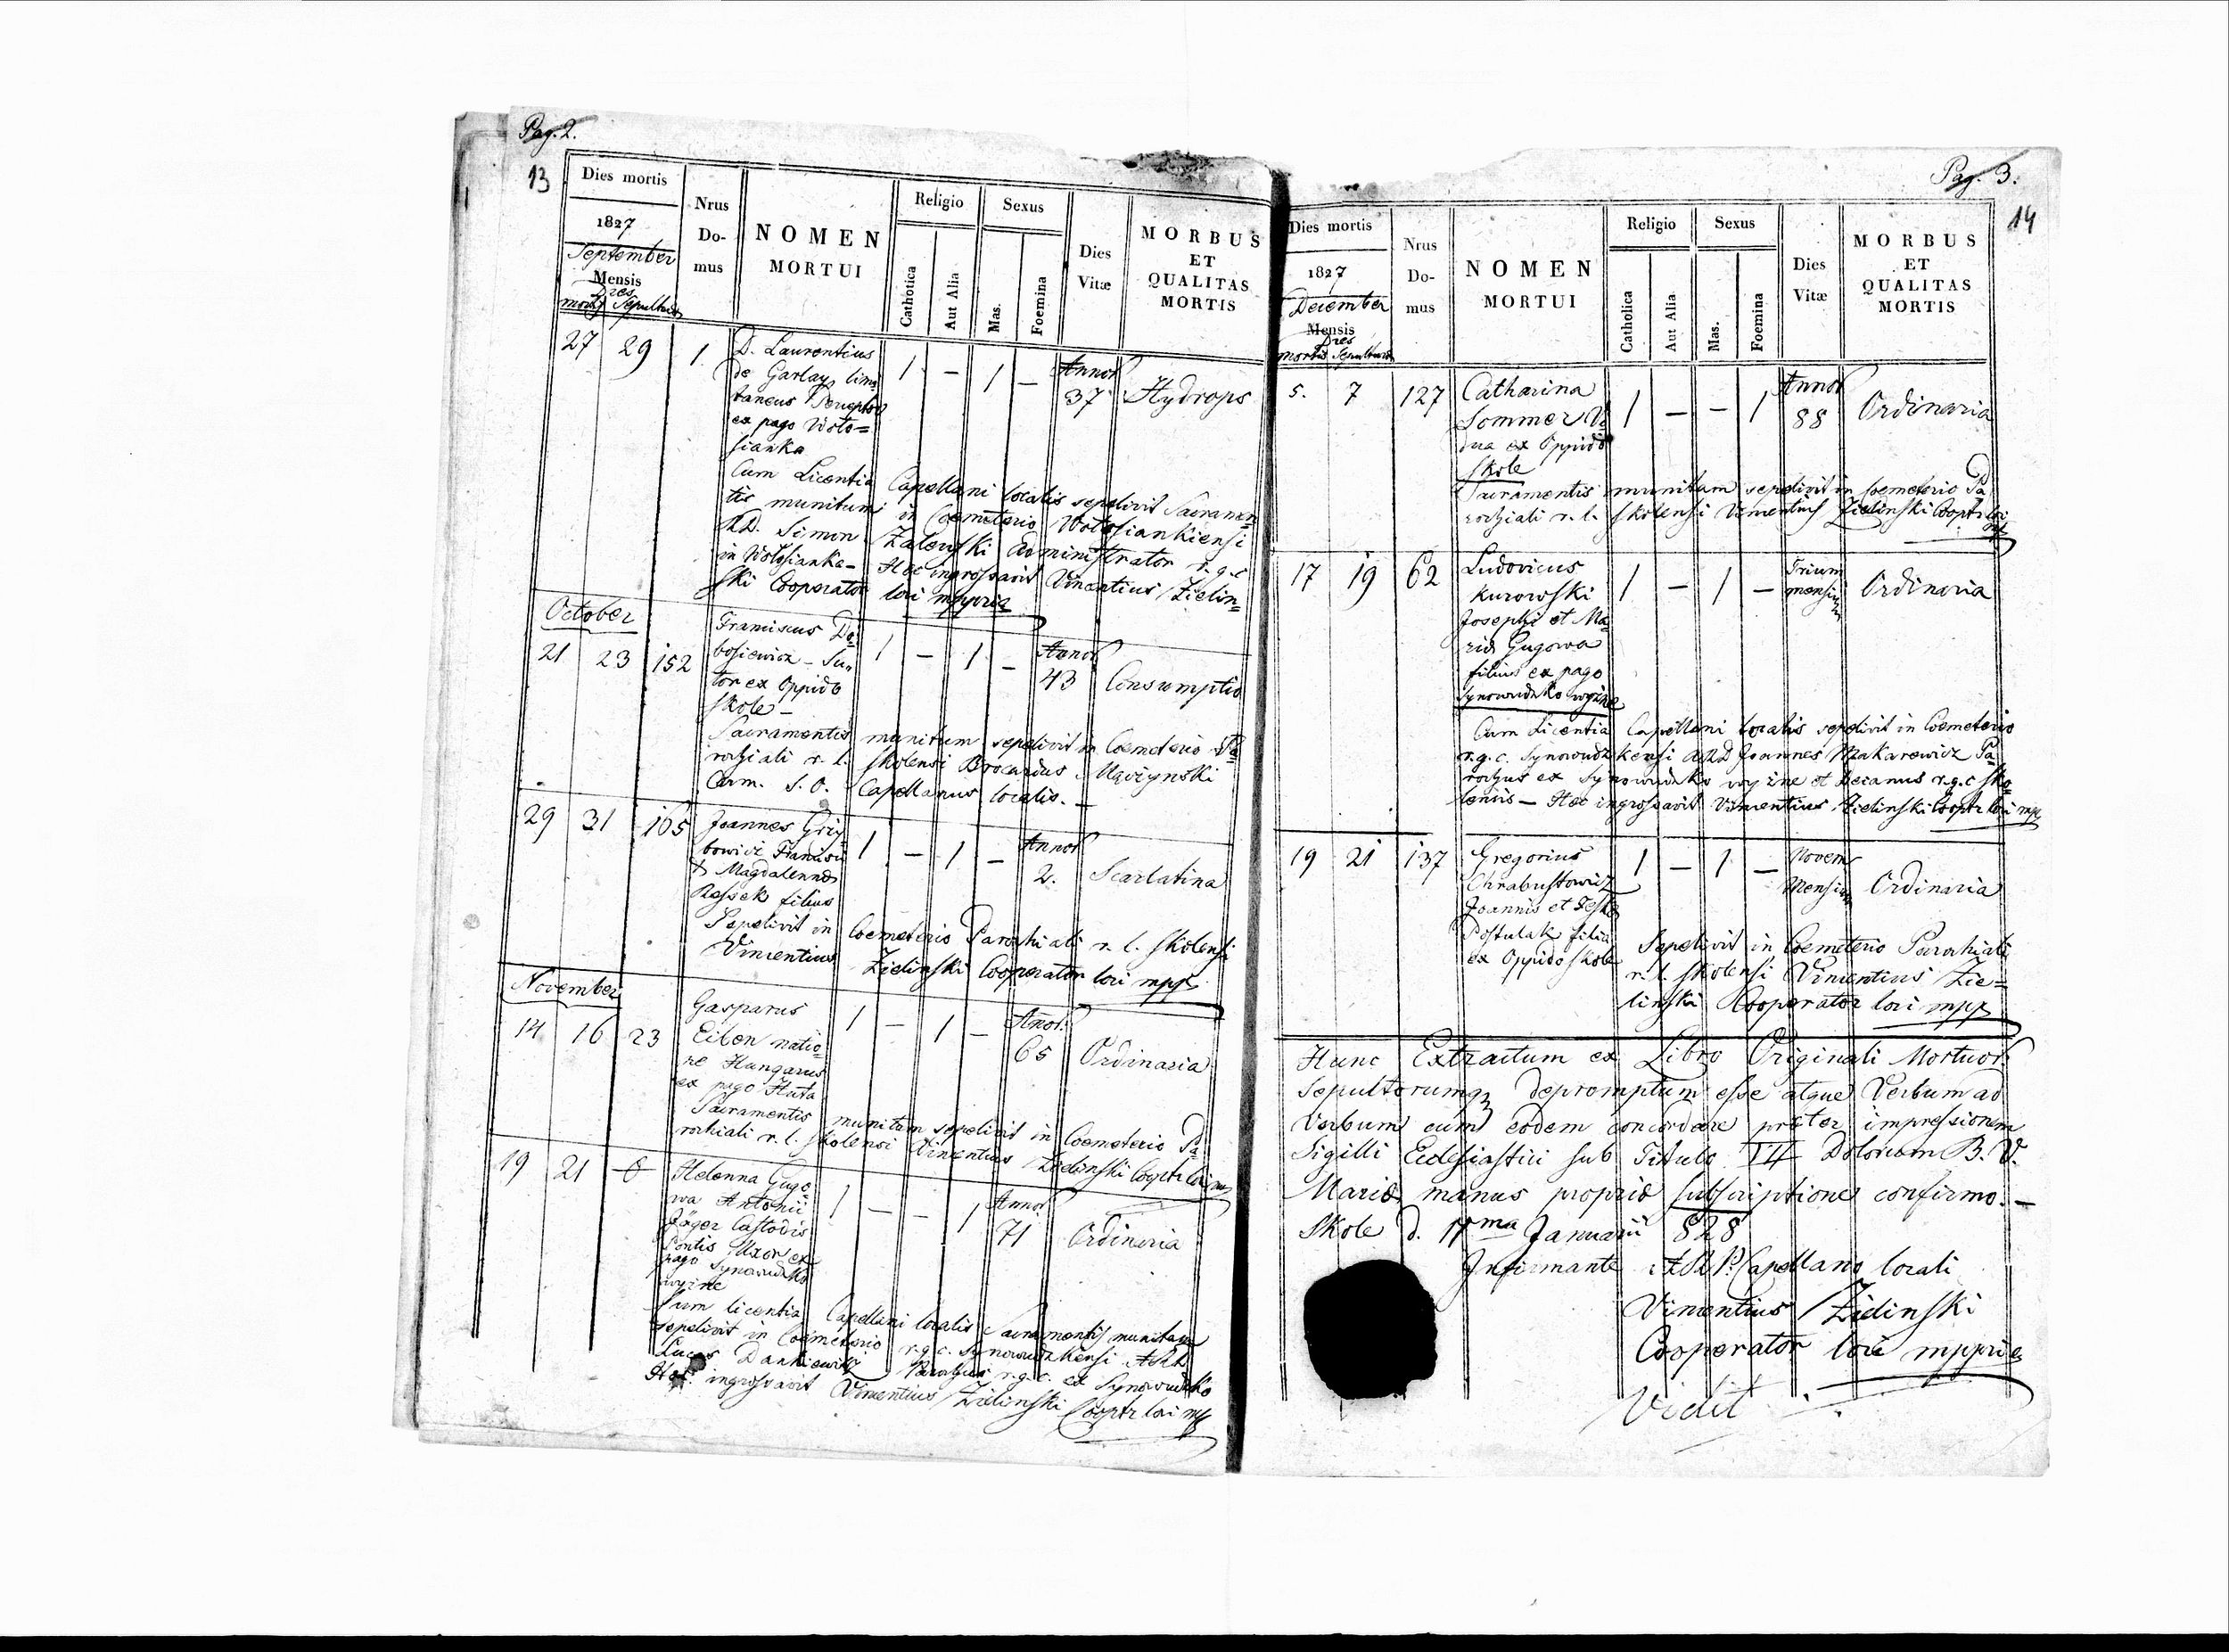 Pag. 2.
13
Dies mortis
1827
September
Mensis
Dies
mortis Sepulturae
Nrus
Do-
mus
NOMEN
MORTUI
Religio
Catholica
Aut Alia
Sexus
Mas.
Foemina
Dies
Vitæ
MORBUS
ET
QUALITAS
MORTIS
27 29 1 D. Laurentius 1 – 1 – Annor 37 Hydrops
de Garlay limi
taneus Perceptor
ex pago Woło=
sianka
Cum Licentia Capellani localis sepelivit Sacramen=
tis munitum in Coemeterio Wołosiankiensi
RD. Simon Zaleuski Administrator r.g.c
in Wołosianka – Hoc ingrossavit Vincentius Zielin=
ski Cooperator loci mppria
October
21 23 152 Franciscus Do= 1 – 1 – Annor 43 Consumptio
bosiewicz – Su=
tor ex Oppido
Skole –
Sacramentis munitum sepelivit in Coemeterio Pa
rochiali r. l. Skolensi Brocardus
Carm. S. O. Capellanus localis. –
29 31 165 Joannes Grzy 1 – 1 – Annor 2. Scarlatina
bowicz Francisci
& Magdalennae
Ressek filius
Sepelivit in Coemeterio Parochiali r. l. Skolensi
Vincentius Zielinski Cooperator loci mpp
November
14 16 23 Gasparus 1 – 1 – Anor. 65 Ordinaria
Eiben natio=
ne Hungarus
ex pago Huta
Sacramentis munitum sepelivit in Coemeterio Pa
rochiali r. l. Skolensi Vincentius Zielinski Cooptr loci mp
19 21 0 Helenna Gugo 1 – – 1 Annor 71 Ordinaria
wa Antonii
Jäger Custodis
Pontis Uxor ex
pago Synowudzko
wyzne
Cum licentia Capellani localis Sacramentis munitam
sepelivit in Coemeterio r.g.c. Synowudzkensi ARD
Lucas Dankiewicz Parochus r.g.c. ex Synowudzko
Hoc ingrossavit Vincentius Zielinski Cooptr loci mp
Pag. 3.
14
Dies mortis
1827
December
Mensis
Dies
mortis Sepulturae
Nrus
Do-
mus
NOMEN
MORTUI
Religio
Catholica
Aut Alia
Sexus
Mas.
Foemina
Dies
Vitæ
MORBUS
ET
QUALITAS
MORTIS
5. 7 127 Catharina 1 – – 1 Annor 88 Ordinaria
Sommer Vi
dua ex Oppido
Skole
Sacramentis munitam sepelivit in Coemeterio Pa
rochiali r. l. Skolensi Vincentius Zielinski Cooptr loci
mp
17 19 62 Ludovicus 1 – 1 – Trium mensium Ordinaria
Kurowski
Josephi et Ma=
riae Gugowa
filius ex pago
Synowudzko wyzne
Cum Licentia Capellani localis sepelivit in Coemeterio
r.g.c. Synowudzkensi ARD Joannes Makarewicz Pa
rochus ex Synowudzko wyzne et Decanus r.g.c Sko
lensis – Hoc ingrossavit Vincentius Zielinski Cooptr loci mpp
19 21 137 Gregorius 1 – 1 – Novem Mensium Ordinaria
Chrabustowicz
Joannis et Teskae
Postulak filius
ex Oppido Skole
Sepelivit in Coemeterio Parochiali
r. l. Skolensi Vincentius Zie=
linski Cooperator loci mpp
Hunc Extractum ex Libro Originali Mortuor
Sepultorumq depromptum esse atque Verbum ad
Verbum cum eodem concordare praeter impressionem
Sigilli Ecclesiastici sub Titulo VII Dolorum B. V.
Mariae manus propriae subscriptione confirmo. –
Skole d. 11ma Januarii 828
Infirmante ARP. Capellano locali
Vincentius Zielinski
Cooperator loci mppria
Vidit